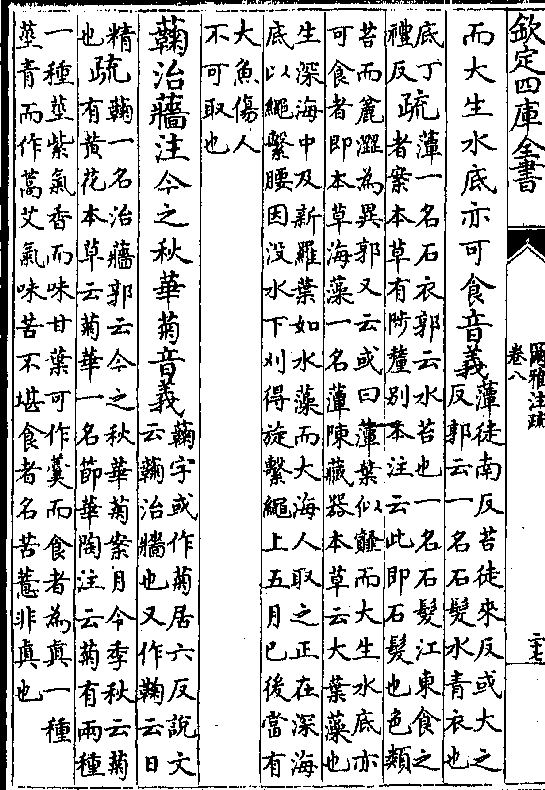 欽定四庫全書
爾雅注疏
卷八
二十七
而大生水底亦可食音義
藫徒南反苔徒來反或大之
反郭云一名石髮水青衣也
底丁
禮反
疏
藫一名石衣郭云水苔也一名石髮江東食之
者案本草有陟釐別本注云此即石髮也色類
苔而麄澀為異郭又云或曰藫葉似䪥而大生水底亦
可食者即本草海藻一名藫陳藏器本草云大葉藻也
生深海中及新羅葉如水藻而大海人取之正在深海
底以繩繫腰因没水下刈得旋繫繩上五月已後當有
大魚傷人
不可取也
蘜治蘠注今之秋華菊音義
蘜字或作菊居六反說文
云蘜治牆也又作鞠云日
精
也
疏
蘜一名治蘠郭云今之秋華菊案月令季秋云菊
有黄花本草云菊華一名節華陶注云菊有兩種
一種莖紫氣香而味甘葉可作羮而食者為真一種
莖青而作蒿艾氣味苦不堪食者名苦薏非真也